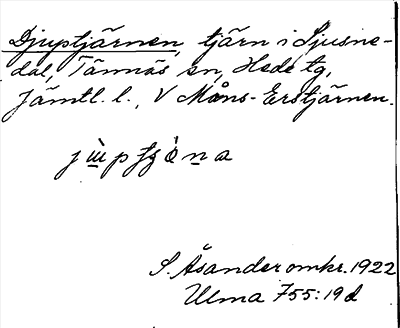 Djuptjärnen, tjärn i Ljusne-
dal, Tännäs sn, Hede tg,
Jämtl. l., V Måns-Erstjärnen.
S. Åsander omkr. 1922
Ulma 755:19d